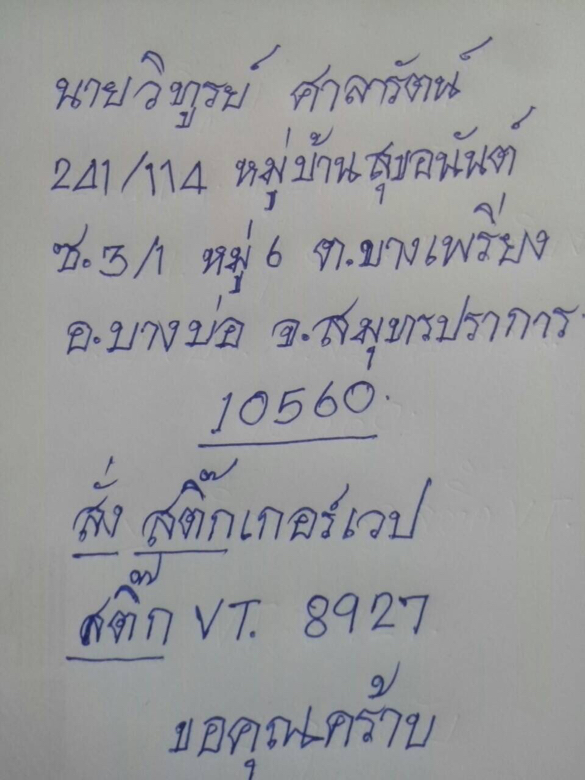 นายวิฑูรย์ ศาลารัตน์
241/114 หมู่บ้านสุขอนันต์
ซ.3/1 หมู่ 6 ต.บางเพรียง
อ.บางบ่อ จ.สมุทรปราการ
10560.
สั่ง สติ๊กเกอร์เวป
สติ๊ก VT. 8927
ขอคุณคร้าบ